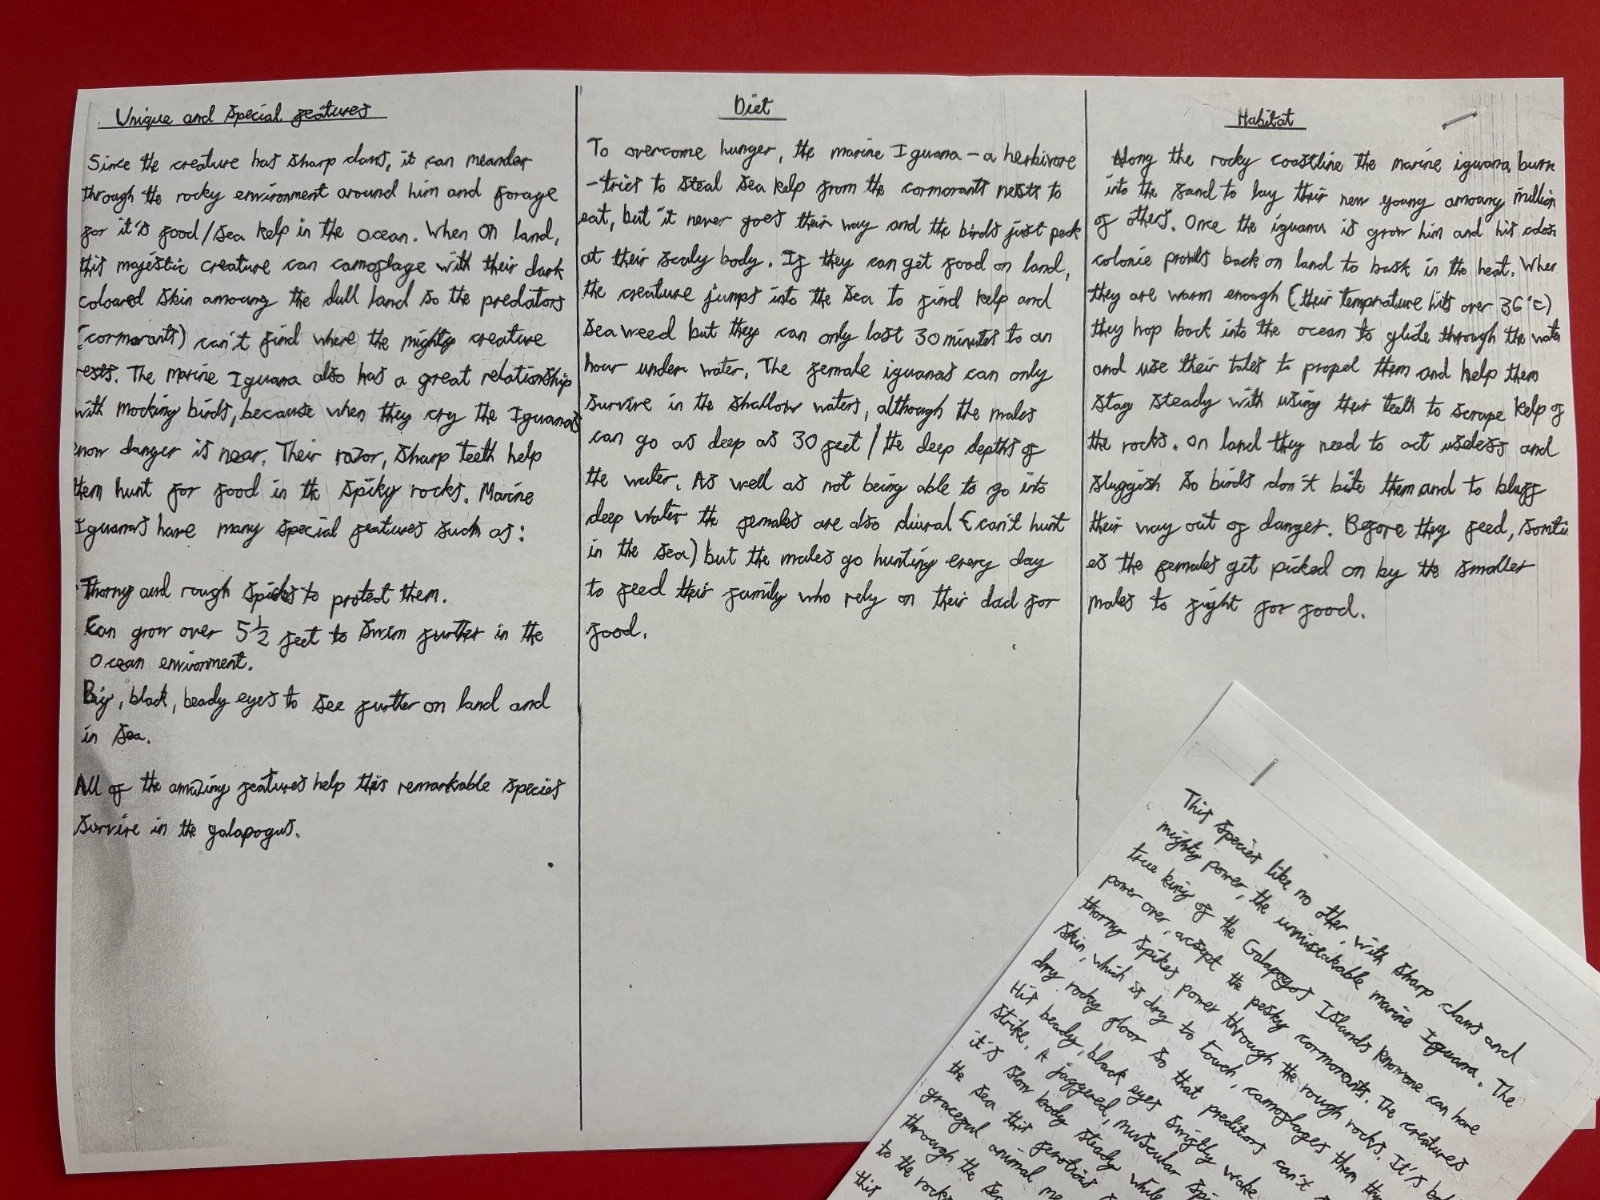 Unique and special features
Since the creature has sharp claws, it can meander
through the rocky environment around him and forage
for it's food/sea kelp in the ocean. When on land,
this majestic creature can camoflage with their dark
coloured skin amoung the dull land so the predators
(cormorants) can't find where the mighty creature
rests. The marine Iguana also has a great relationship
with mocking birds, because when they cry the Iguanas
know danger is near. Their razor, sharp teeth help
them hunt for food in the spiky rocks. Marine
Iguanas have many special features such as:
Thorny and rough spicks to protect them.
Can grow over 5½ feet to swim further in the
Ocean envioment.
Big, black, beady eyes to see further on land and
in sea.
All of the amazing features help this remarkable species
survive in the galapogus.
Diet
To overcome hunger, the marine Iguana - a herbivore
- tries to steal sea kelp from the cormorants nests to
eat, but it never goes their way and the birds just peck
at their scaly body. If they can get food on land,
the creature jumps into the sea to find kelp and
seaweed but they can only last 30 minutes to an
hour under water. The female iguanas can only
survive in the shallow waters, although the males
can go as deep as 30 feet / the deep depths of
the water. As well as not being able to go into
deep water the females are also diural (can't hunt
in the sea) but the males go hunting every day
to feed their family who rely on their dad for
food.
Habitat
Along the rocky coastline the marine iguana burn
into the sand to lay their new young amoung million
of others. Once the iguana is grow him and his
colonie prowls back on land to bask in the heat. When
they are warm enough (their temprature hits over 36°c)
they hop back into the ocean to glide through the water
and use their tales to propel them and help them
stay steady with using their teeth to scrape kelp of
the rocks. On land they need to act useless and
sluggish so birds don't bite them and to bluff
their way out of danger. Before they feed, somti
es the females get picked on by the smaller
males to fight for food.
This species like no other, with sharp claws and
mighty power, the unmistakable marine Iguana. The
true king of the Galapogos Islands knowone can have
power over, accept the pesky cormorants. The creatures
thorny spikes power through the rough rocks. It's
skin, which is dry to touch, camoflages them
dry rocky floor so that preditors can't
His beady, black eyes swiftly
strike. A jaggered, muscular
it's slow body steady while
the sea this ferotious
graceful animal
through the
to the rocks
this